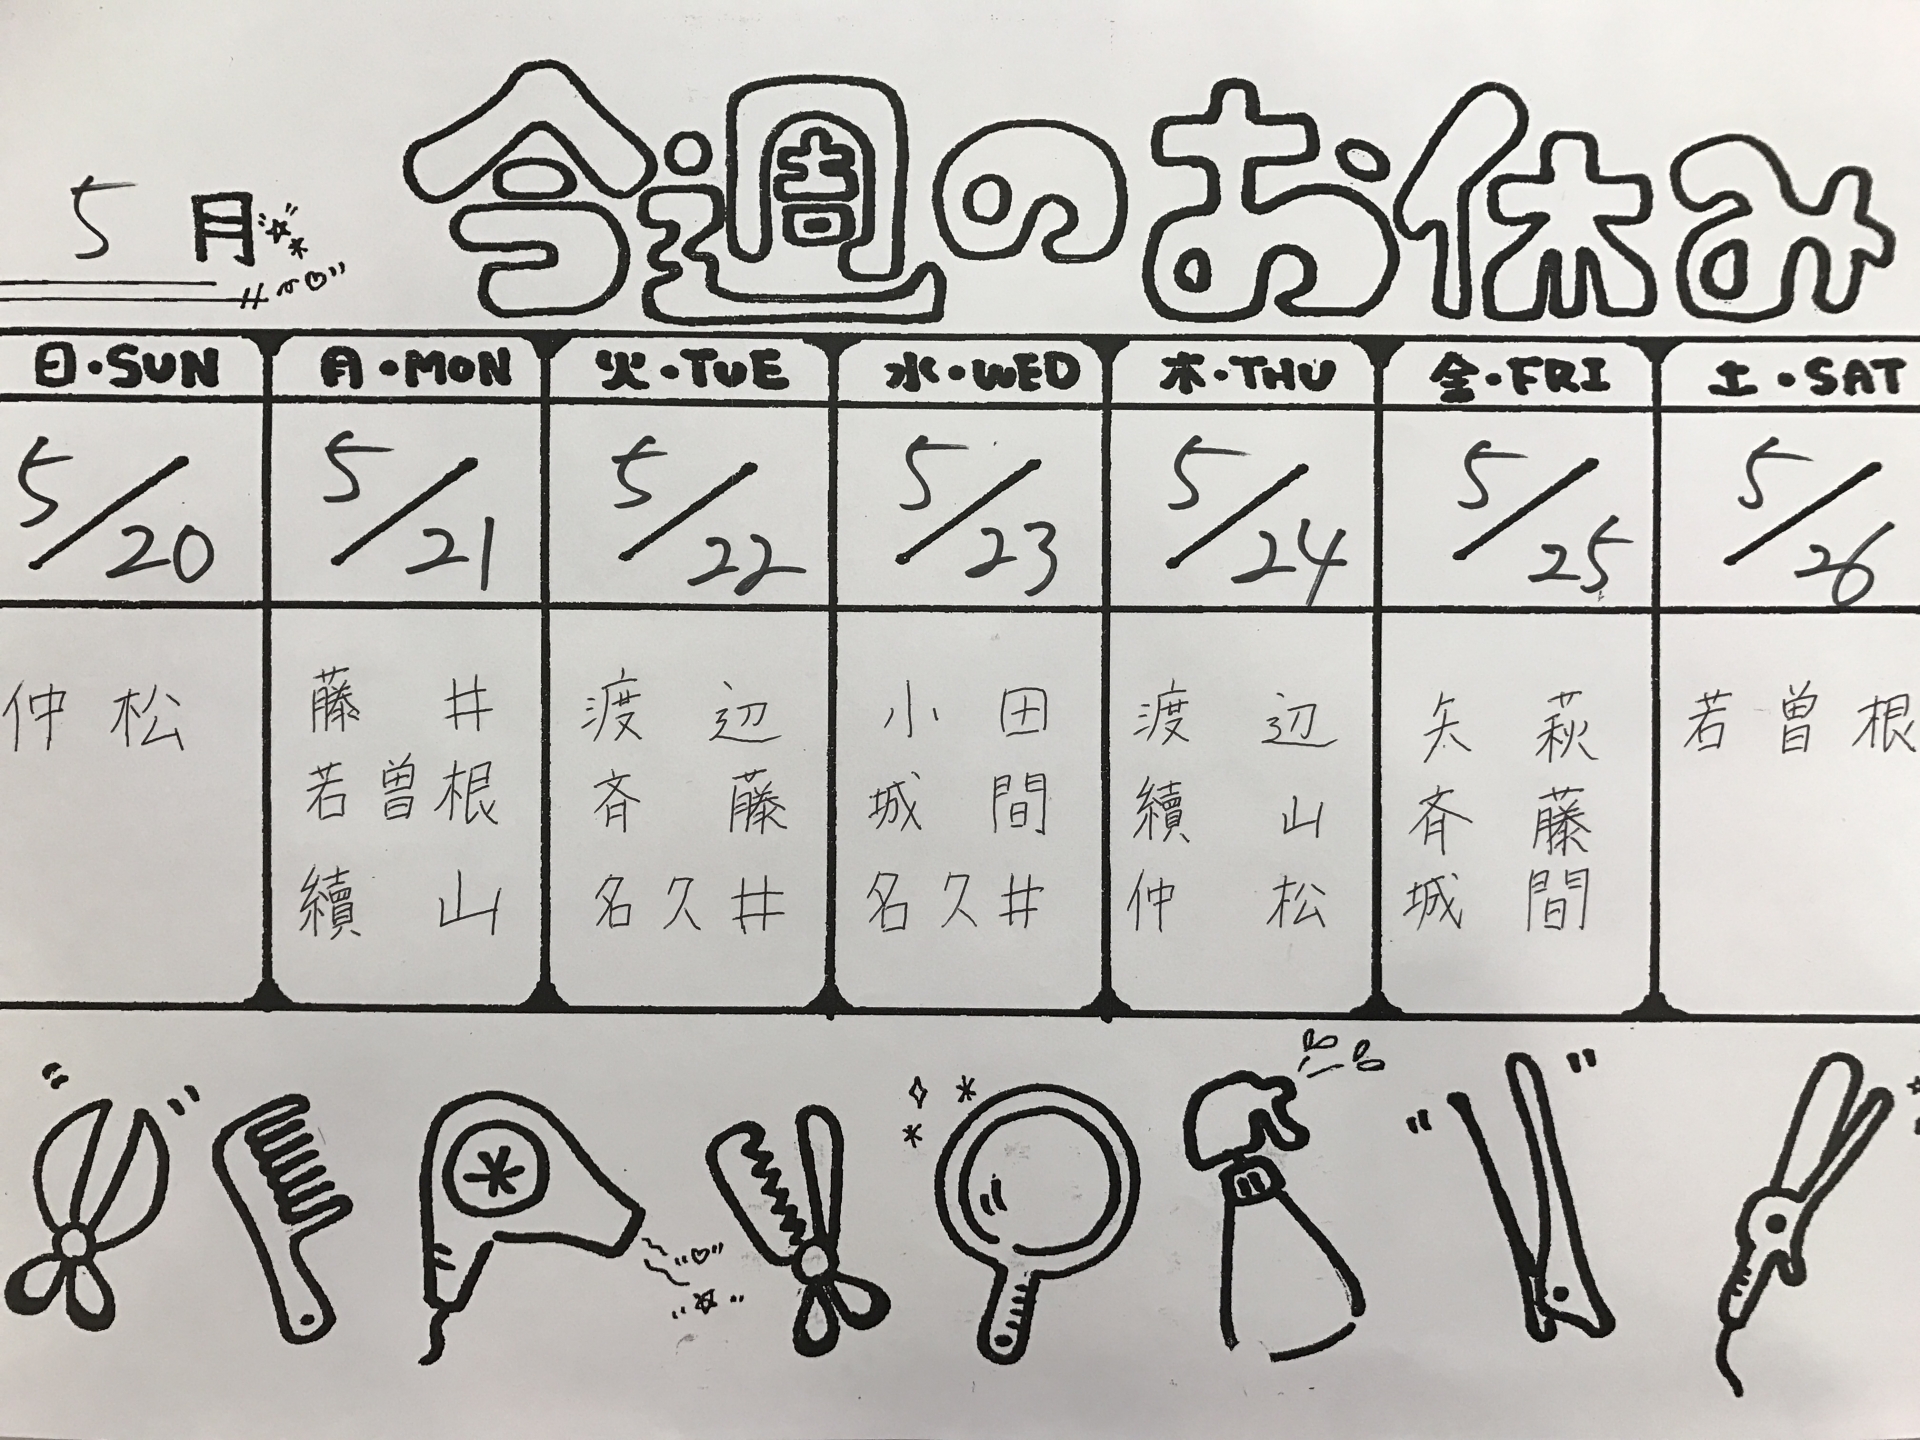 5月
今週のお休み
日・SUN 月・MON 火・TUE 水・WED 木・THU 金・FRI 土・SAT
5/20 5/21 5/22 5/23 5/24 5/25 5/26
仲松 藤井 渡辺 小田 渡辺 矢萩 若曽根
若曽根 斉藤 城間 續山 斉藤
續山 名久井 名久井 仲松 城間